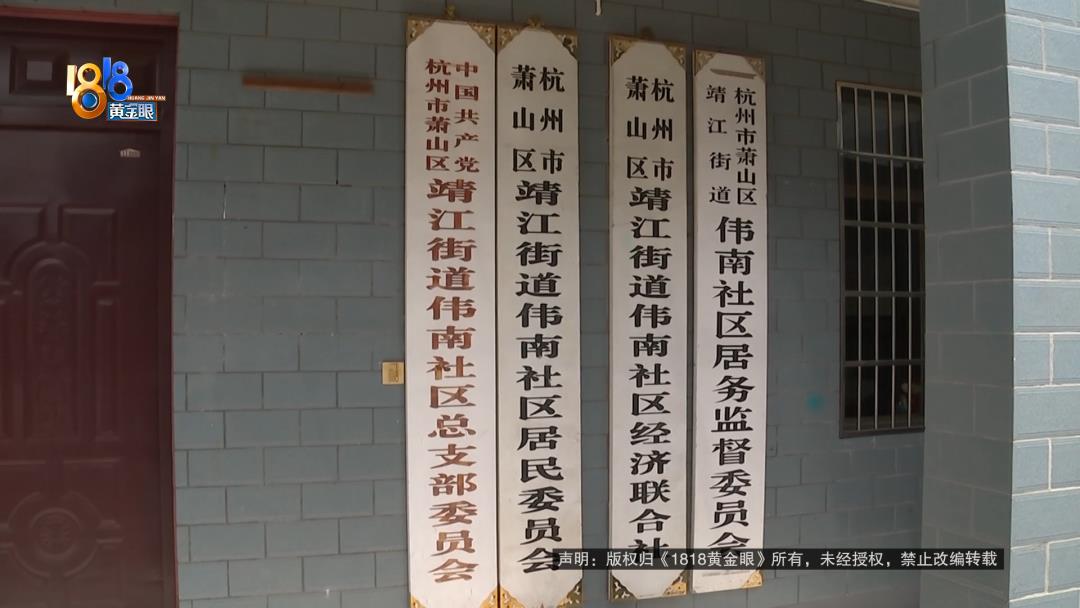 1818
HUANG JIN YAN
黄金眼
中国共产党
杭州市萧山区
靖江街道伟南社区总支部委员会
杭州市
萧山区
靖江街道伟南社区居民委员会
杭州市
萧山区
靖江街道伟南社区经济联合社
杭州市萧山区
靖江街道
伟南社区居务监督委员会
声明：版权归《1818黄金眼》所有，未经授权，禁止改编转载